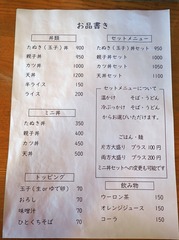 お品書き
丼類
たぬき(玉子)丼 900
親子丼 950
カツ丼 1000
天丼 1100
半ライス 150
ライス 200
ミニ丼
たぬき丼 350
親子丼 400
カツ丼 450
天丼 500
トッピング
玉子(生orゆで卵) 70
おろし 70
味噌汁 70
ひとくちそば 70
セットメニュー
たぬき(玉子)丼セット
親子丼セット
カツ丼セット
天丼セット 1100
セットメニューについて
温かけ そば・うどん
冷ぶっかけ そば・うどん
からお選びいただけます。
ごはん・麺
片方大盛り プラス 100円
両方大盛り プラス 200円
ミニ丼セットへの変更も可能です
飲み物
ウーロン茶
オレンジジュース
コーラ